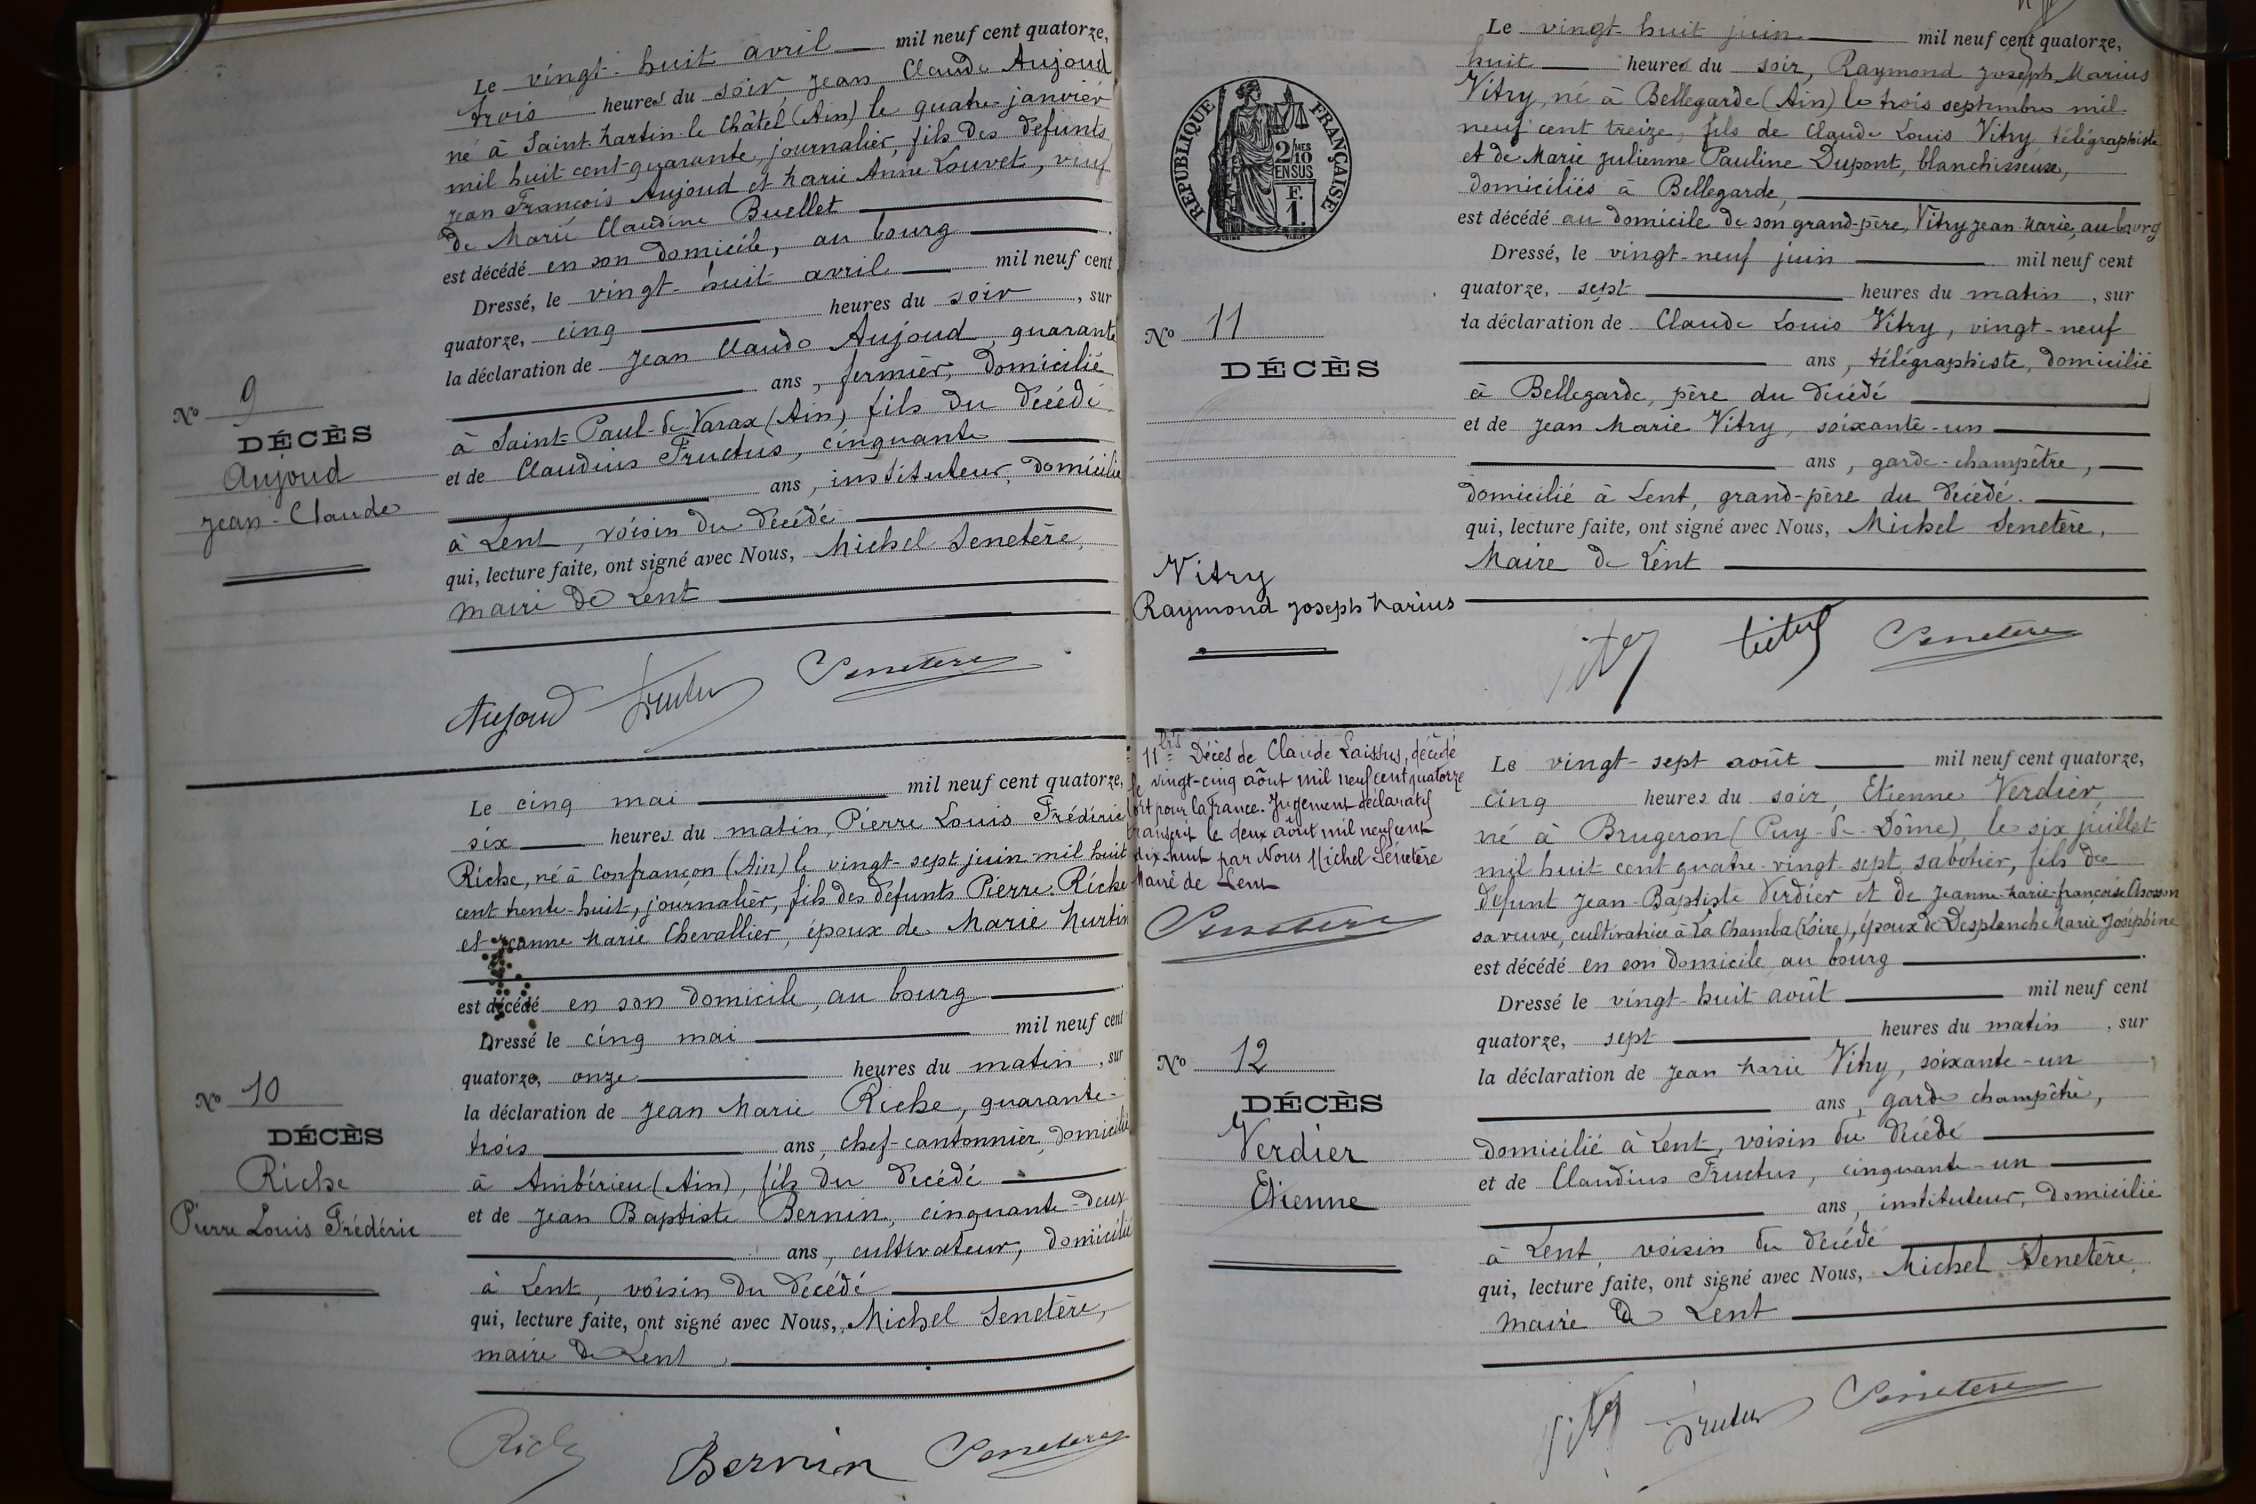 Le vingt-huit avril mil neuf cent quatorze,
trois heures du soir Jean Claude Aujoud
né à Saint-Martin-le-Châtel (Ain) le quatre janvier
mil huit cent quarante, journalier, fils des défunts
Jean François Aujoud et Marie Anne Louvet, veuf
de Marie Claudine Buellet
est décédé en son domicile, au bourg
Dressé, le vingt-huit avril mil neuf cent
quatorze, cinq heures du soir, sur
la déclaration de Jean Claude Aujoud, quarante
ans, fermier, domicilié
à Saint-Paul-de-Varax (Ain) fils du décédé
et de Claudius Fructus, cinquante
ans, instituteur, domicilié
à Lent, voisin du décédé
qui, lecture faite, ont signé avec Nous, Michel Senetère,
maire de Lent
Aujoud Fructus Senetere
No 9
DÉCÈS
Aujoud
Jean-Claude
Le cinq mai mil neuf cent quatorze,
six heures du matin, Pierre Louis Frédéric
Riche, né à Confrançon (Ain) le vingt-sept juin mil huit
cent trente-huit, journalier, fils des défunts Pierre Riche
et Jeanne Marie Chevallier, époux de Marie Murtin
est décédé en son domicile, au bourg
Dressé le cinq mai mil neuf cent
quatorze, onze heures du matin, sur
la déclaration de Jean Marie Riche, quarante-
trois ans, chef-cantonnier, domicilié
à Ambérieu (Ain), fils du décédé
et de Jean Baptiste Bernin, cinquante-deux
ans, cultivateur, domicilié
à Lent, voisin du décédé
qui, lecture faite, ont signé avec Nous, Michel Senetère,
maire de Lent
Riche Bernin Senetere
No 10
DÉCÈS
Riche
Pierre Louis Frédéric
RÉPUBLIQUE FRANÇAISE
2/10MES
EN SUS
F.
1.
Le vingt-huit juin mil neuf cent quatorze,
huit heures du soir, Raymond Joseph Marius
Vitry, né à Bellegarde (Ain) le trois septembre mil
neuf cent treize, fils de Claude Louis Vitry, télégraphiste
et de Marie Julienne Pauline Dupont, blanchisseuse,
domiciliés à Bellegarde,
est décédé au domicile de son grand-père, Vitry Jean Marie, au bourg
Dressé, le vingt-neuf juin mil neuf cent
quatorze, sept heures du matin, sur
la déclaration de Claude Louis Vitry, vingt-neuf
ans, télégraphiste, domicilié
à Bellegarde, père du décédé
et de Jean Marie Vitry, soixante-un
ans, garde-champêtre,
domicilié à Lent, grand-père du décédé.
qui, lecture faite, ont signé avec Nous, Michel Senetère,
Maire de Lent
Vitry Vitry Senetere
No 11
DÉCÈS
Vitry
Raymond Joseph Marius
11bis Décès de Claude Laissus, décédé
le vingt-cinq août mil neuf cent quatorze
Mort pour la France. Jugement déclaratif
transcrit le deux août mil neuf cent
dix-huit par Nous Michel Sénetère
Maire de Lent
Senetere
Le vingt-sept août mil neuf cent quatorze,
cinq heures du soir, Etienne Verdier
né à Brugeron (Puy-de-Dôme), le six juillet
mil huit cent quatre-vingt-sept, sabotier, fils de
défunt Jean-Baptiste Verdier et de Jeanne-Marie-Françoise
sa veuve, cultivatrice à La Chamba (Loire), époux de Desplanche Marie Joséphine
est décédé en son domicile au bourg
Dressé le vingt-huit août mil neuf cent
quatorze, sept heures du matin, sur
la déclaration de Jean Marie Vitry, soixante-un
ans, garde champêtre,
domicilié à Lent, voisin du décédé
et de Claudius Fructus, cinquante-un
ans, instituteur, domicilié
à Lent, voisin du décédé
qui, lecture faite, ont signé avec Nous, Michel Senetère
maire de Lent
Vitry Fructus Senetere
No 12
DÉCÈS
Verdier
Etienne